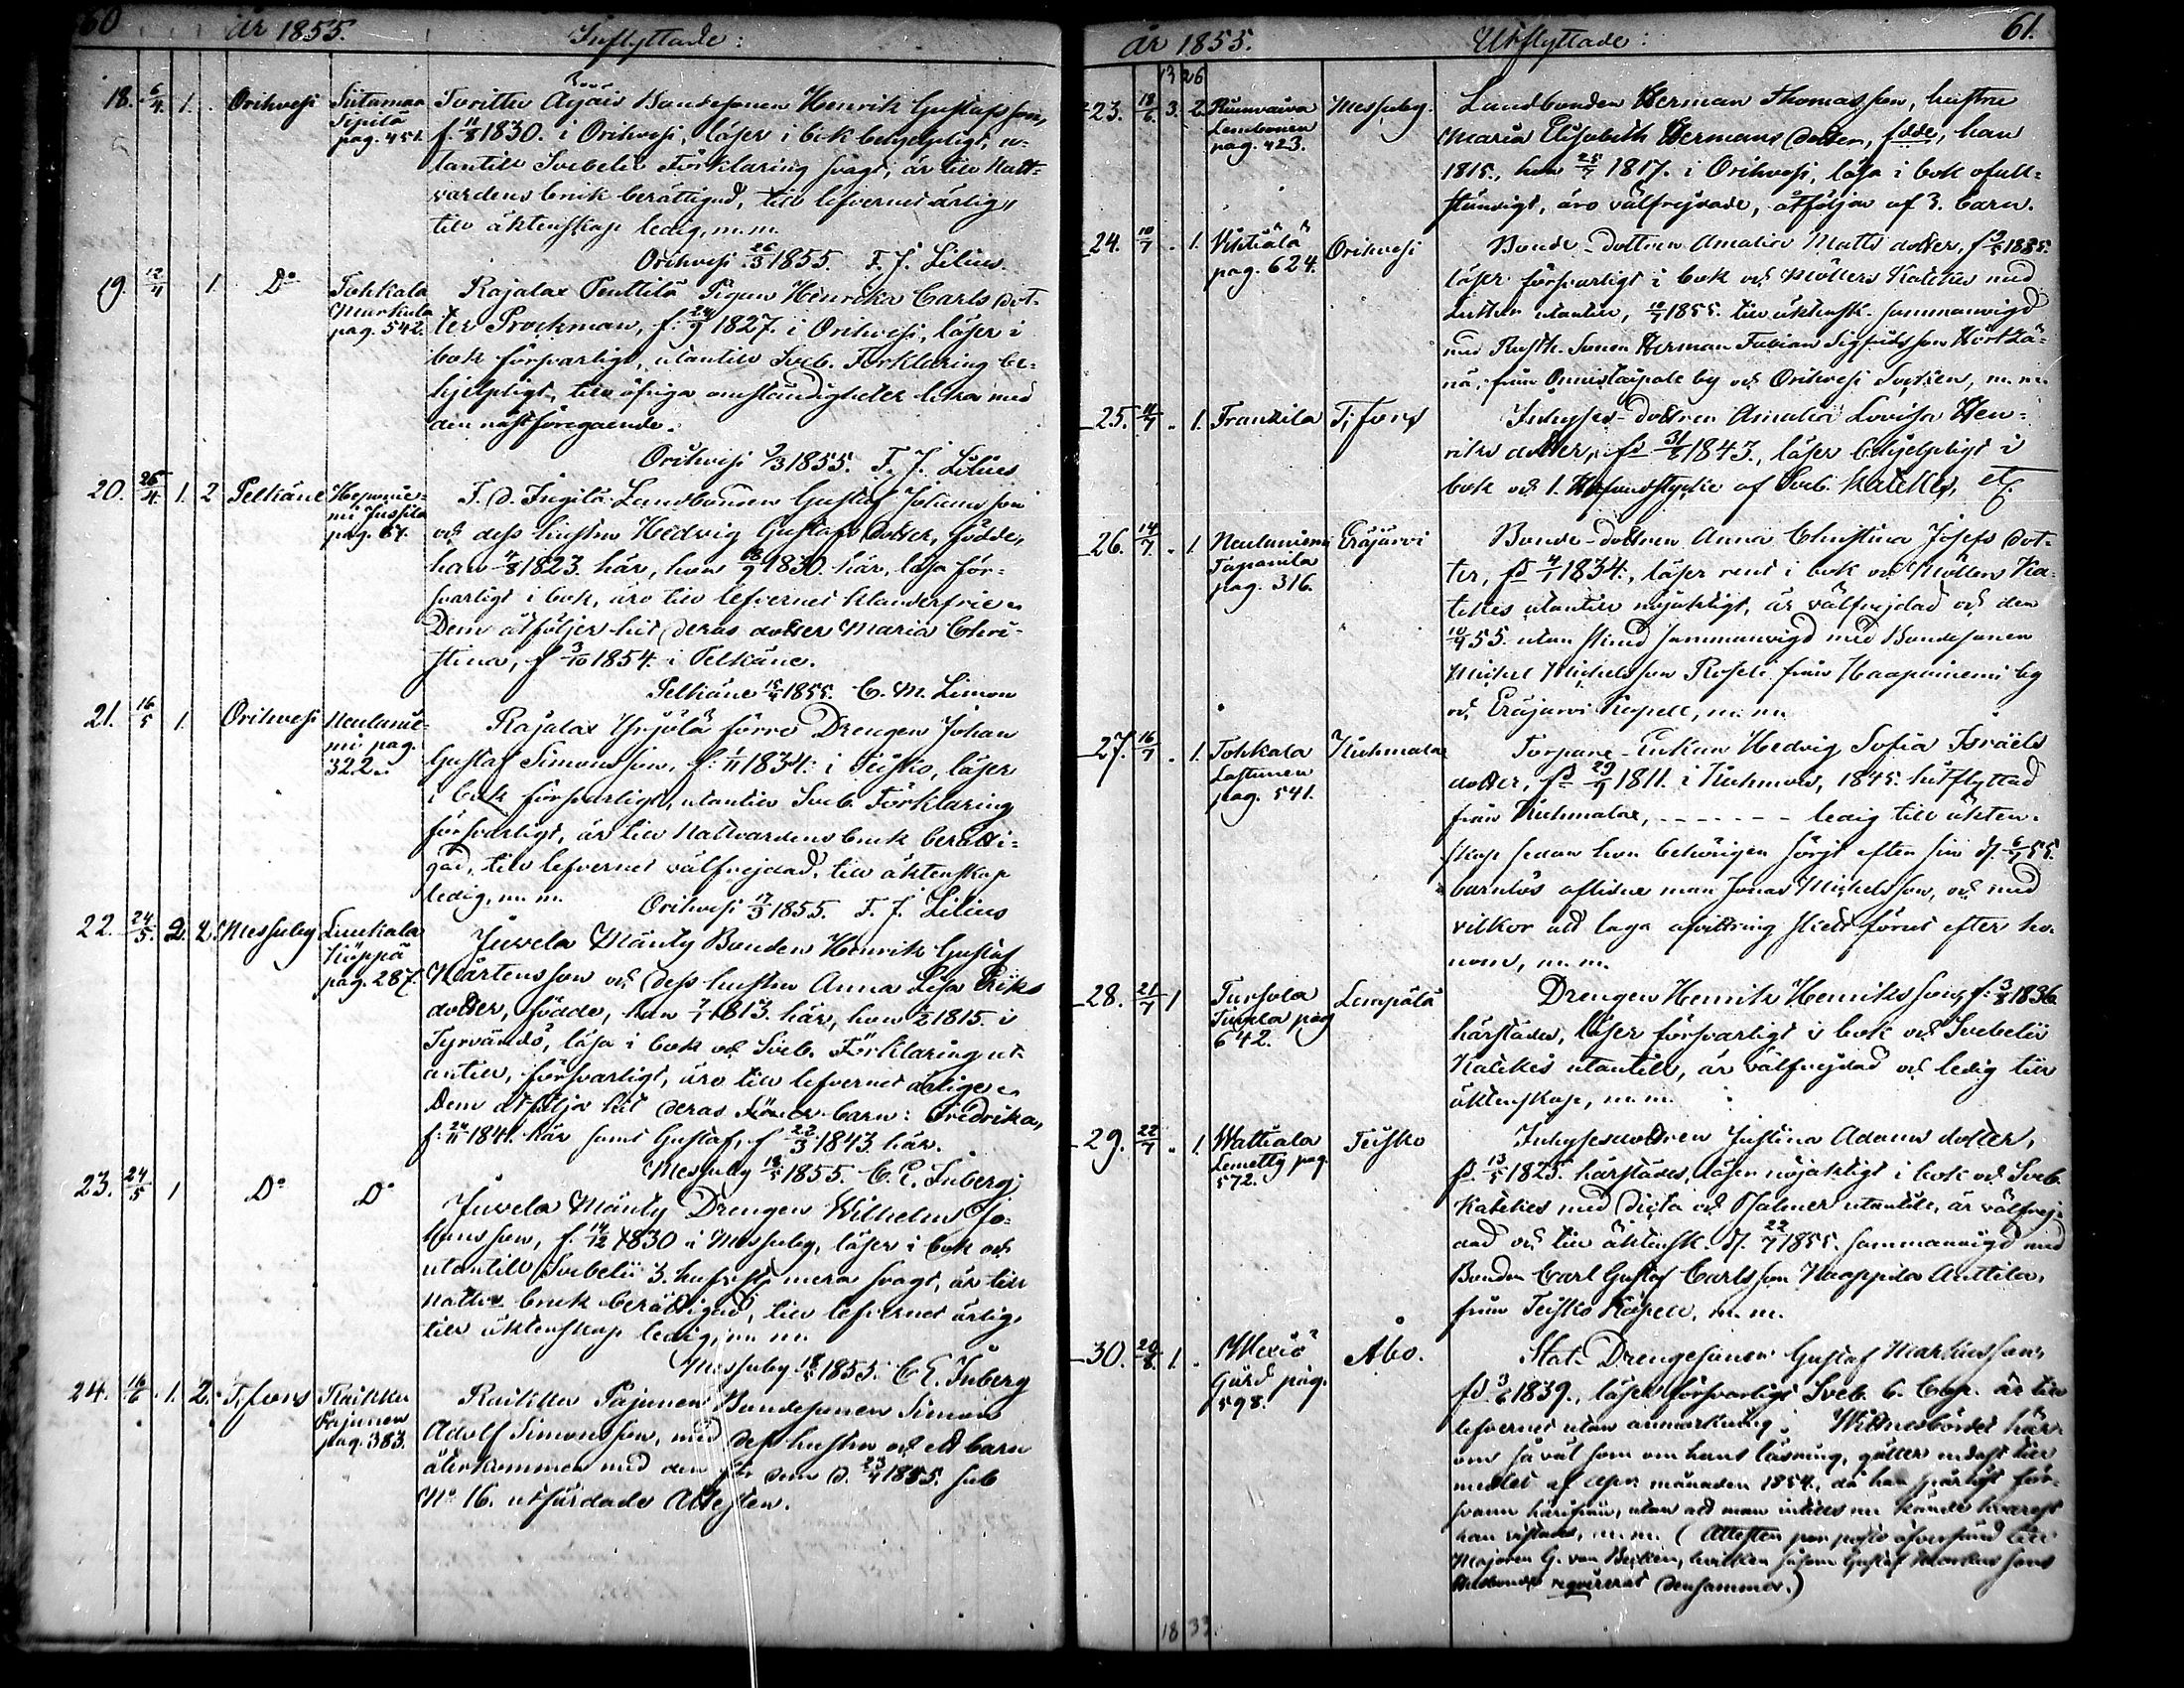 60 År 1855. Inflyttade:
18. 6/4. 1. Orihvesi Siitamaa Sipilä pag. 451. Torittu Äijäis Bondesonen Henrik Gustafsson,
f. 11/8 1830. i Orihvesi, läser i bok behjelpligt, u-
tantill Svebelii Förklaring svagt, är till Natt-
vardens bruk berättigad, till lefvernet ärlig,
till äktenskap ledig, m.m.
Orihvesi 26/3 1855. F. J. Lilius.
19. 12/4 1 Do Tohkala Markula pag. 542. Rajalax Penttilä Pigan Henrika Carls dot-
ter Prockman, f: 24/9 1827. i Orihvesi, läser i
bok försvarligt, utantill Sveb. Förklaring be-
hjelpligt, till öfriga omständigheter lika med
den nästföregående.
Orihvesi 9/3 1855. F. J. Lilius
20. 25/4. 1. 2 Pelkäne pag. 67. F. d. Ingilä Landbonden Gustaf Johansson
och dess hustru Hedvig Gustafs dotter, födde,
han 4/8 1823. här, hon 18/9 1830. här, läsa för-
svarligt i bok, äro till lefvernet klanderfrie.
Dem åtföljer hit deras dotter Maria Chri-
stina, f 3/10 1854. i Pelkäne.
Pelkäne 15/4 1855. C. M. Limon
21. 16/5 1. Orihvesi Neulanie- mi pag. 322. Rajalax Yrjölä förre Drengen Johan
Gustaf Simonsson, f: 1/11 1834. i Teisko, läser
i bok försvarligt, utantill Sveb. Förklaring
försvarligt, är till Nattvardens bruk berätti-
gad, till lefvernet välfrejdad, till äktenskap
ledig, m.m. Orihvesi 17/3 1855. F. J. Lilius
22. 24/5. 2. 2. Messuby Liukala pag. 287. Juvela Mänty Bonden Henrik Gustaf
Mårtensson och dess hustru Anna Lisa Eriks
dotter, födde, han 7/7 1813. här, hon 1815. i
Tyrvändö, läsa i bok och Sveb. Förklaring ut-
antill, försvarligt, äro till lefvernet ärlige.
Dem åtfölja hit deras barn: Fredrika,
f: 24/11 1841. här samt Gustaf, f 22/3 1843. här.
Messuby 18/5 1855. C. E. Inberg
23. 24/5 1 Do Do Juvela Mänty Drengen Wilhelm Jo-
hansson, f. 14/12 1830 i Messuby, läser i bok och
utantill Svebelii 3. hufvst. mera svagt, är till
Nattv. bruk berättigad, till lefvernet ärlig,
till äktenskap ledig, m. m.
Messuby 18/5 1855. C E. Inberg
24. 16/6 1. 2. T,fors Raikku Pajunen pag. 383. Raikku Pajunen Bondesonen Simon
Adolf Simonsson, med dess hustru och ett barn
återkommen med den för dem d. 23/4 1855. sub
No 16. utfärdade Attesten.
År 1855. Utflyttade: 61.
13 26
23. 18/6 3. 2 pag. 423. Messuby. Landbonden Herman Thomasson, hustru
Maria Elisabeth Hermans dotter, födde, han
1815., hon 25/7 1817. i Orihvesi, läsa i bok ofull-
ständigt, äro välfrejdade, åtföljas af 3. barn.
24. 10/7 1. pag. 624. Orihvesi Bonde-dottren Amalia Matts dotter, 1835.
läser försvarligt i bok och Möllers Katekes med
Luthers utantill, 10/7 1855. till äktensk. sammanvigd
med Rusth. Sonen Herman Fabian Sigfridsson
från Onnistaipale by och Orihvesi Socken, m. m.
25. 11/7 1. Frankila T,fors Inhyses-dottren Amalia Lovisa Hen-
riks dotter, fd 31/8 1843., läser behjelpligt i
bok och 1. Hufvudstycke af Sveb. Kateches, etc.
26. 14/7 1 Neulaniemi Tapanila pag. 316. Eräjärvi Bonde-dottren Anna Christina Josefs dot-
ter, fd 4/1 1834., läser rent i bok och Möllers Ka-
tekes utantill nöjaktigt, är välfrejdad och den
10/4 55 utan hind sammanvigd med Bondesonen
Michel Michelsson från Haapaniemi by
och Eräjärvi Kapell, m. m.
27. 16/7 1. Tohkala Lastunen pag. 541. Kuhmalax Torpare-Enkan Hedvig Sofia Israels
dotter, fd 29/9 1811. i Kuhmois, 1845. hitflyttad
från Kuhmalax, - - - - - - - ledig till äkten-
skap sedan hon behörigen sörjt efter sin d. 6/7 55.
barnlös aflidne man Jonas Michelsson, och med
vilkor att laga afvittring skedt förut efter ho-
nom, m. m.
28. 21/7 1 Tursola Juvela pag 642. Lempälä Drengen Henrik Henriksson, f: 3/8 1836
härstädes, läser försvarligt i bok och Svebelii
Katekes utantill, är välfrejdad och ledig till
äktenskap, m. m.
29. 22/7 1. Wattiala Lemetty pag. 572. Teisko Inhysesdottren Justina Adams dotter,
fd. 13/5 1825. härstädes, läser nöjaktigt i bok och Sveb.
Katekes med Dicta och Psalmer utantill, är välfrej-
dad och till äktensk. d. 22/7 1855. sammanvigd med
Bonden Carl Gustaf Carlsson Kaappila Anttila,
från Teisko Kapell, m. m.
30. 20/8. 1. Wexiö Gård pag. 598. Åbo. Stat. Drengesonen Gustaf Markusson,
fd 3/6 1839., läser försvarligt Sveb. 6. Cap. är till
lefvernet utan anmärkning. Wittnesbördet här-
om så väl som om hans läsning, gäller endast till
medlet af Apr. månaden 1854., då han för-
svann härifrån, utan att man intills nu kände hvarest
han vistades, m. m. (Attesten per posto öfversänd till
Majoren G. von hvilken såsom Gustaf Markussons
Husbonde reqvirerat densamma.)
18 33.